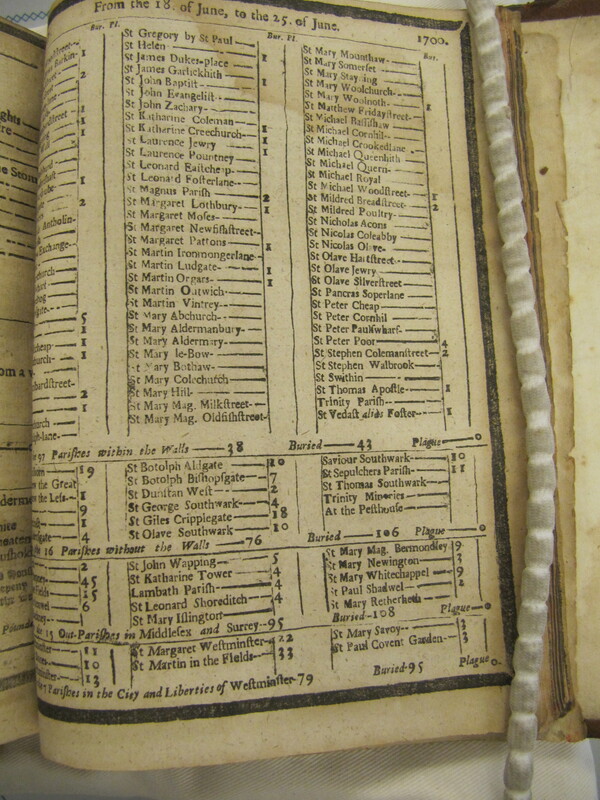 From the 18. of June, to the 25. of June. 1700.
Bur. Pl.
Bur. Pl.
Bur.
1
2
1
1
1
2
Antholin-
Exchange--
5
1
1
2
1
St Gregory by St Paul
St Helen
St James Dukes-place 1
St James Garlickhith
St John Baptist 1
St John Evangelist
St John Zachary
St Katharine Coleman
St Katharine Creechurch 1
St Laurence Jewry 1
St Laurence Pountney 1
St Leonard Eastcheap
St Leonard Fosterlane
St Magnus Parish
St Margaret Lothbury 2
St Margaret Moses 1
St Margaret Newfishstreet
St Margaret Pattons
St Martin Ironmongerlane 1
St Martin Ludgate
St Martin Orgars 1
St Martin Outwich 1
St Martin Vintrey
St Mary Abchurch
St Mary Aldermanbury
St Mary Aldermary
St Mary le-Bow
St Mary Bothaw
St Mary Colechurch
St Mary Hill
St Mary Mag. Milkstreet
St Mary Mag. Oldfishstreet
St Mary Mounthaw
St Mary Somerset
St Mary Stayning
St Mary Woolchurch
St Mary Woolnoth 1
St Matthew Fridaystreet
St Michael Bassishaw
St Michael Cornhil
St Michael Crookedlane
St Michael Queenhith
St Michael Quern
St Michael Royal
St Michael Woodstreet
St Mildred Breadstreet 1
St Mildred Poultry 2
St Nicholas Acons
St Nicolas Coleabby
St Nicolas Olave
St Olave Hartstreet
St Olave Jewry
St Olave Silverstreet
St Pancras Soperlane
St Peter Cheap
St Peter Cornhil
St Peter Paulswharf
St Peter Poor
St Stephen Colemanstreet 4
St Stephen Walbrook 2
St Swithin
St Thomas Apostle 1
Trinity Parish
St Vedast alias Foster 1
97 Parishes within the Walls 38 Buried 43 Plague 0
19
the Great
the Less 1
9
1
4
St Botolph Aldgate 20
St Botolph Bishopsgate 7
St Dunstan West 2
St George Southwark 4
St Giles Cripplegate 18
St Olave Southwark 10
Saviour Southwark 10
St Sepulchers Parish 11
St Thomas Southwark
Trinity Minories
At the Pesthouse
16 Parishes without the Walls 76 Buried 106 Plague 0
2
45
15
6
St John Wapping 5
St Katharine Tower 4
Lambath Parish 4
St Leonard Shoreditch 4
St Mary Islington
St Mary Mag. Bermondsey 9
St Mary Newington 3
St Mary Whitechappel 9
St Paul Shadwel 2
St Mary Retherheth
15 Out-Parishes in Middlesex and Surrey 95 Buried 108 Plague 0
11
10
13
St Margaret Westminster 22
St Martin in the Fields 33
St Mary Savoy 3
St Paul Covent Garden 3
7 Parishes in the City and Liberties of Westminster 79 Buried 95 Plague 0